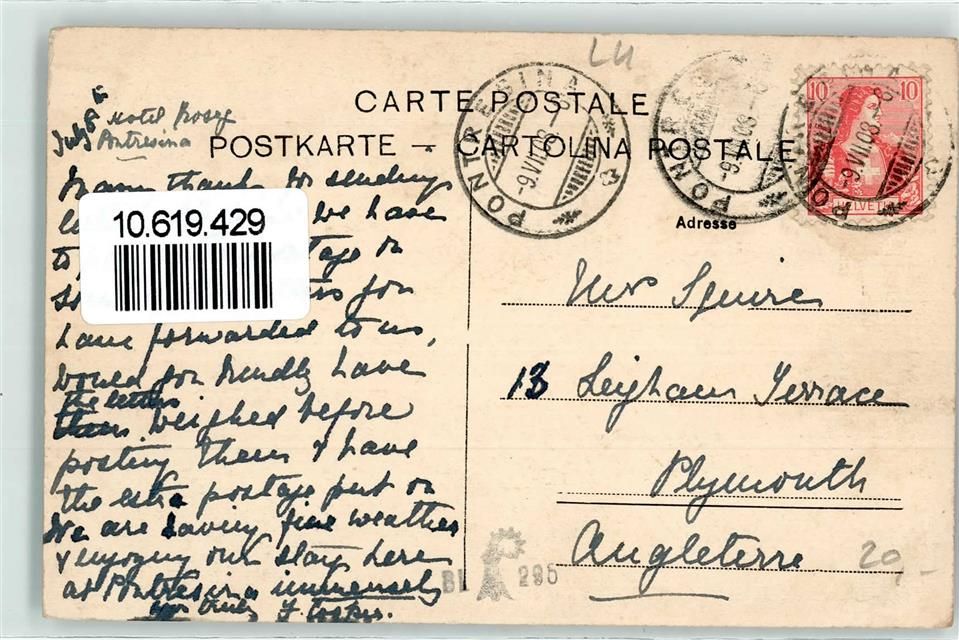 LU
CARTE POSTALE
POSTKARTE - CARTOLINA POSTALE
PONTRESINA
-9.VII.08
PONTRESINA
-9.VII.08
PONTRESINA
-9.VII.08
10 10
HELVETIA
Adresse
July 8
Hotel Roseg
Pontresina
Many thanks for sending
we have
to postage on
you
have forwarded to us,
would you kindly have
the letters
them weighed before
posting them & have
the extra postage put on
We are having fine weather
& enjoying our stay here
at Pontresina immensely
10.619.429
Mrs Squires
13 Leigham Terrace
Plymouth
Angleterre
BI 295
20,-